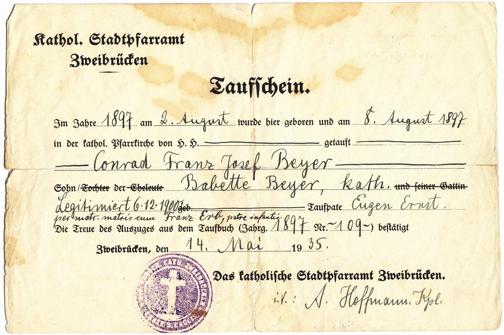 Kathol. Stadtpfarramt
Zweibrücken
Taufschein.
Im Jahre 1897 am 2. August wurde hier geboren und am 8. August 1897
in der kathol. Pfarrkirche von H. H. getauft
Conrad Franz Josef Beyer
Sohn/Tochter der Eheleute Babette Beyer, kath. und seiner Gattin
Legitimiert 6.12.1900 geb. Taufpate Eugen Ernst.
per matr. matris cum Franz Erb, patre infantis
Die Treue des Auszuges aus dem Taufbuch (Jahrg. 1897 Nr. 109) bestätigt
Zweibrücken, den 14. Mai 1935.
Das katholische Stadtpfarramt Zweibrücken.
i.V.: A. Hoffmann. Kpl.